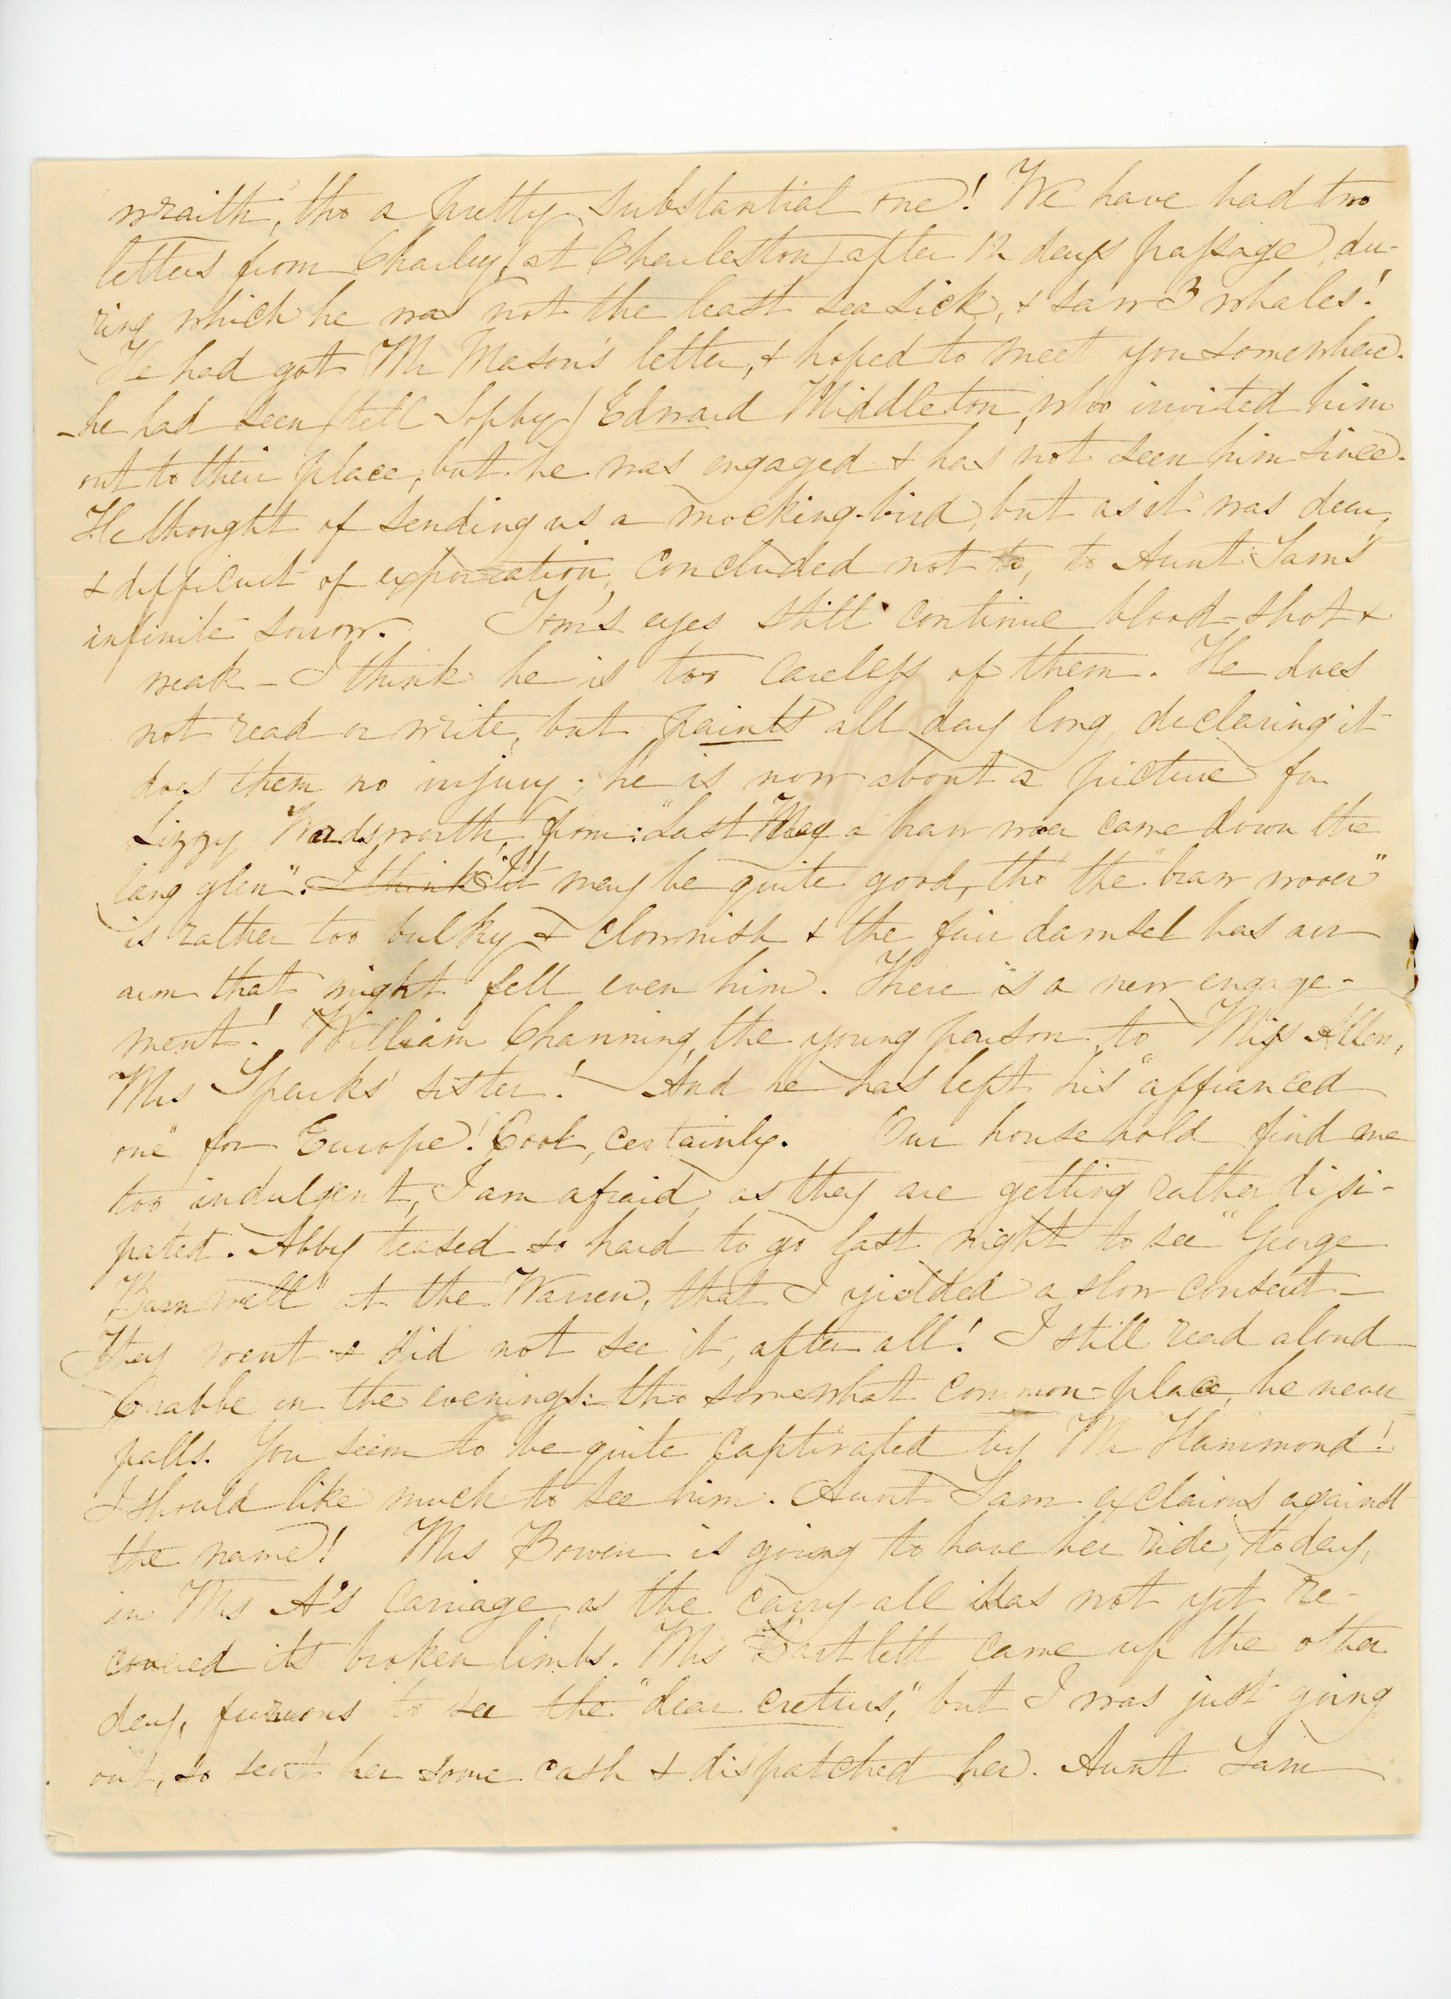 wraith, tho a pretty substantial one! We have had two
letters from Charley, (at Charleston) after 12 days passage, du-
ring which he was not the least sea sick, & saw 3 whales!
He had got Mr Mason's letter, & hoped to meet you somewhere.
- he had seen (tell Sophy) Edward Middleton, who invited him
out to their place, but he was engaged & has not seen him since.
He thought of sending us a mocking-bird, but as it was dear,
& difficult of exportation, concluded not to, to Aunt Sam's
infinite sorrow. Tom's eyes still continue blood-shot &
weak - I think he is too careless of them. He does
not read or write, but paints all day long, declaring it
does them no injury; he is now about a picture for
Lizzy Wadsworth, from: "Last May a braw wooer came down the
lang glen". I think It may be quite good, tho' the "braw wooer"
is rather too bulky & clownish & the fair damsel has an
arm that might fell even him. There is a new engage-
ment! William Channing, the young parson, to Miss Allen,
Mrs Sparks' sister! And he has left his "affianced
one" for Europe! Cool, certainly. Our household find me
too indulgent, I am afraid, as they are getting rather dissi-
pated. Abby teased so hard to go last night to see "George
Barnwell" at the Warren, that I yielded a slow consent -
They went & did not see it, after all! I still read aloud
Crabbe in the evenings: tho somewhat common-place, he never
palls. You seem to be quite captivated by Mr Hammond!
I should like much to see him. Aunt Sam exclaims against
the name! Mrs Bowen is going to have her ride, today,
in Mrs A's carriage, as the carry-all has not yet re-
covered its broken limbs. Mrs Bartlett came up the other
day, furious to see the "dear creturs," but I was just going
out, so sent her some cash & dispatched her. Aunt Sam